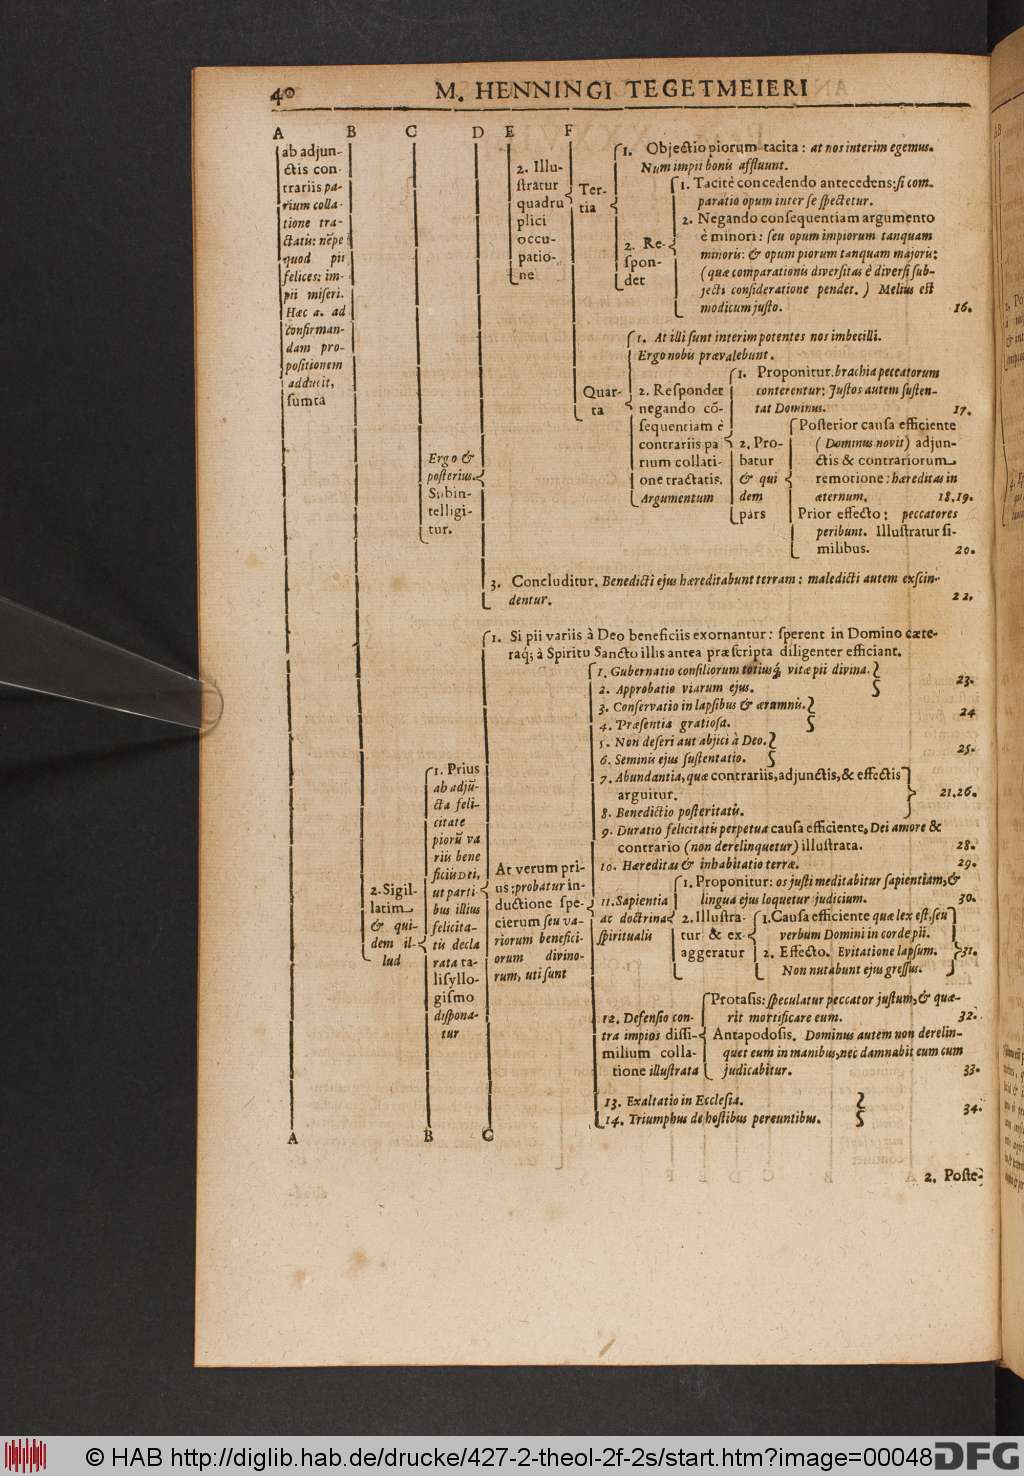 40
M. HENNINGI TEGETMEIERI
A B C D E F
ab adjun-
ctis con-
trariis pa-
rium colla-
tione tra-
ctatis: nẽpe
quod pii
felices: im-
pii miseri.
Hæc a. ad
confirman-
dam pro-
positionem
adducit,
sumta
2. Illu-
stratur
quadru
plici
occu-
patio-
ne
Ter-
tia
1. Objectio piorum tacita: at nos interim egemus.
Num impii bonis affluunt.
2. Re-
spon-
det
1. Tacitè concedendo antecedens: si com-
paratio opum inter se spectetur.
2. Negando consequentiam argumento
è minori: seu opum impiorum tanquam
minoris: & opum piorum tanquam majoris:
(quæ comparationis diversitas è diversi sub-
jecti consideratione pendet.) Melius est
modicum justo. 16.
Quar-
ta
1. At illi sunt interim potentes nos imbecilli.
Ergo nobis prævalebunt.
2. Respondet
negando cõ-
sequentiam è
contrariis pa
rium collati-
one tractatis.
Argumentum
1. Proponitur. brachia peccatorum
conterentur: Justos autem susten-
tat Dominus. 17.
2. Pro-
batur
& qui
dem
pars
Posterior causa efficiente
(Dominus novit) adjun-
ctis & contrariorum
remotione: hæreditas in
æternum. 18.19.
Prior effecto: peccatores
peribunt. Illustratur si-
milibus. 20.
Ergo &
posterius.
Subin-
telligi-
tur.
3. Concluditur. Benedicti ejus hæreditabunt terram: maledicti autem exscin-
dentur. 22.
2. Sigil-
latim
& qui-
dem il-
lud
1. Prius
ab adjũ-
cta feli-
citate
piorũ va
riis bene
ficiis Dei,
ut parti-
bus illius
felicita-
tis decla
rata ta-
li syllo-
gismo
dispona-
tur
1. Si pii variis à Deo beneficiis exornantur: sperent in Domino cæte-
raq; à Spiritu Sancto illis antea præscripta diligenter efficiant.
At verum pri-
us: probatur in-
ductione spe-
cierum seu va-
riorum benefici-
orum divino-
rum, uti sunt
1. Gubernatio consiliorum totiusq́; vitæ pii divina.
2. Approbatio viarum ejus. 23.
3. Conservatio in lapsibus & ærumnis.
4. Præsentia gratiosa. 24
5. Non deseri aut abjici à Deo.
6. Seminis ejus sustentatio. 25.
7. Abundantia, quæ contrariis, adjunctis, & effectis
arguitur. 21.26.
8. Benedictio posteritatis.
9. Duratio felicitatis perpetua causa efficiente, Dei amore &
contrario (non derelinquetur) illustrata. 28.
10. Hæreditas & inhabitatio terræ. 29.
11. Sapientia
ac doctrina
spiritualis
1. Proponitur: os justi meditabitur sapientiam, &
lingua ejus loquetur judicium. 30.
2. Illustra-
tur & ex-
aggeratur
1. Causa efficiente quæ lex est, seu
verbum Domini in corde pii.
2. Effecto. Evitatione lapsum. 31.
Non nutabunt ejus gressus.
12. Defensio con-
tra impios dissi-
milium colla-
tione illustrata
Protasis: speculatur peccator justum, & quæ-
rit mortificare eum. 32.
Antapodosis. Dominus autem non derelin-
quet eum in manibus, nec damnabit eum cum
judicabitur. 33.
13. Exaltatio in Ecclesia.
14. Triumphus de hostibus pereuntibus. 34.
A B C
2. Poste-
© HAB http://diglib.hab.de/drucke/427-2-theol-2f-2s/start.htm?image=00048
DFG